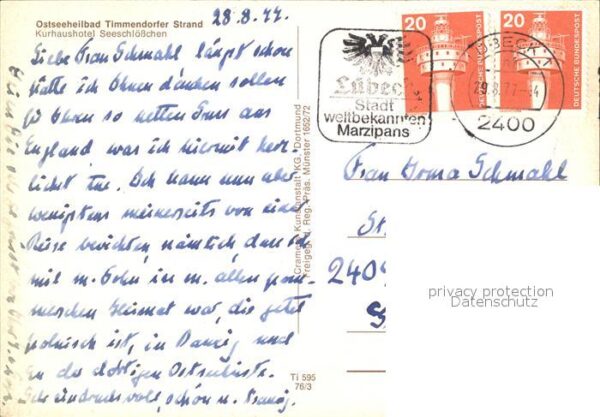 Ostseeheilbad Timmendorfer Strand
Kurhaushotel Seeschlößchen
28.8.77.
Liebe Frau Schmahl längst schon
hätte ich Ihnen danken sollen
für Ihren so netten Gruss aus
England, was ich hiermit herz-
lichst tue. Ich kann nun aber
wenigstens meinerseits von einer
Reise berichten, nämlich, dass ich
mit m. Sohn in m. alten pom-
merschen Heimat war, die jetzt
polnisch ist, in Danzig und
an der dortigen Ostseeküste.
Sehr eindrucksvoll, schön u. traurig.
Cramers Kunstanstalt KG, Dortmund
Freigeg. d. Reg. Präs. Münster 1652/72
Ti 595
76/3
Lübeck
Stadt
weltbekannten
Marzipans
20
DEUTSCHE BUNDESPOST
20
DEUTSCHE BUNDESPOST
LÜBECK 1
29.8.77
2400
Frau Irma Schmahl
St
2409
privacy protection
Datenschutz